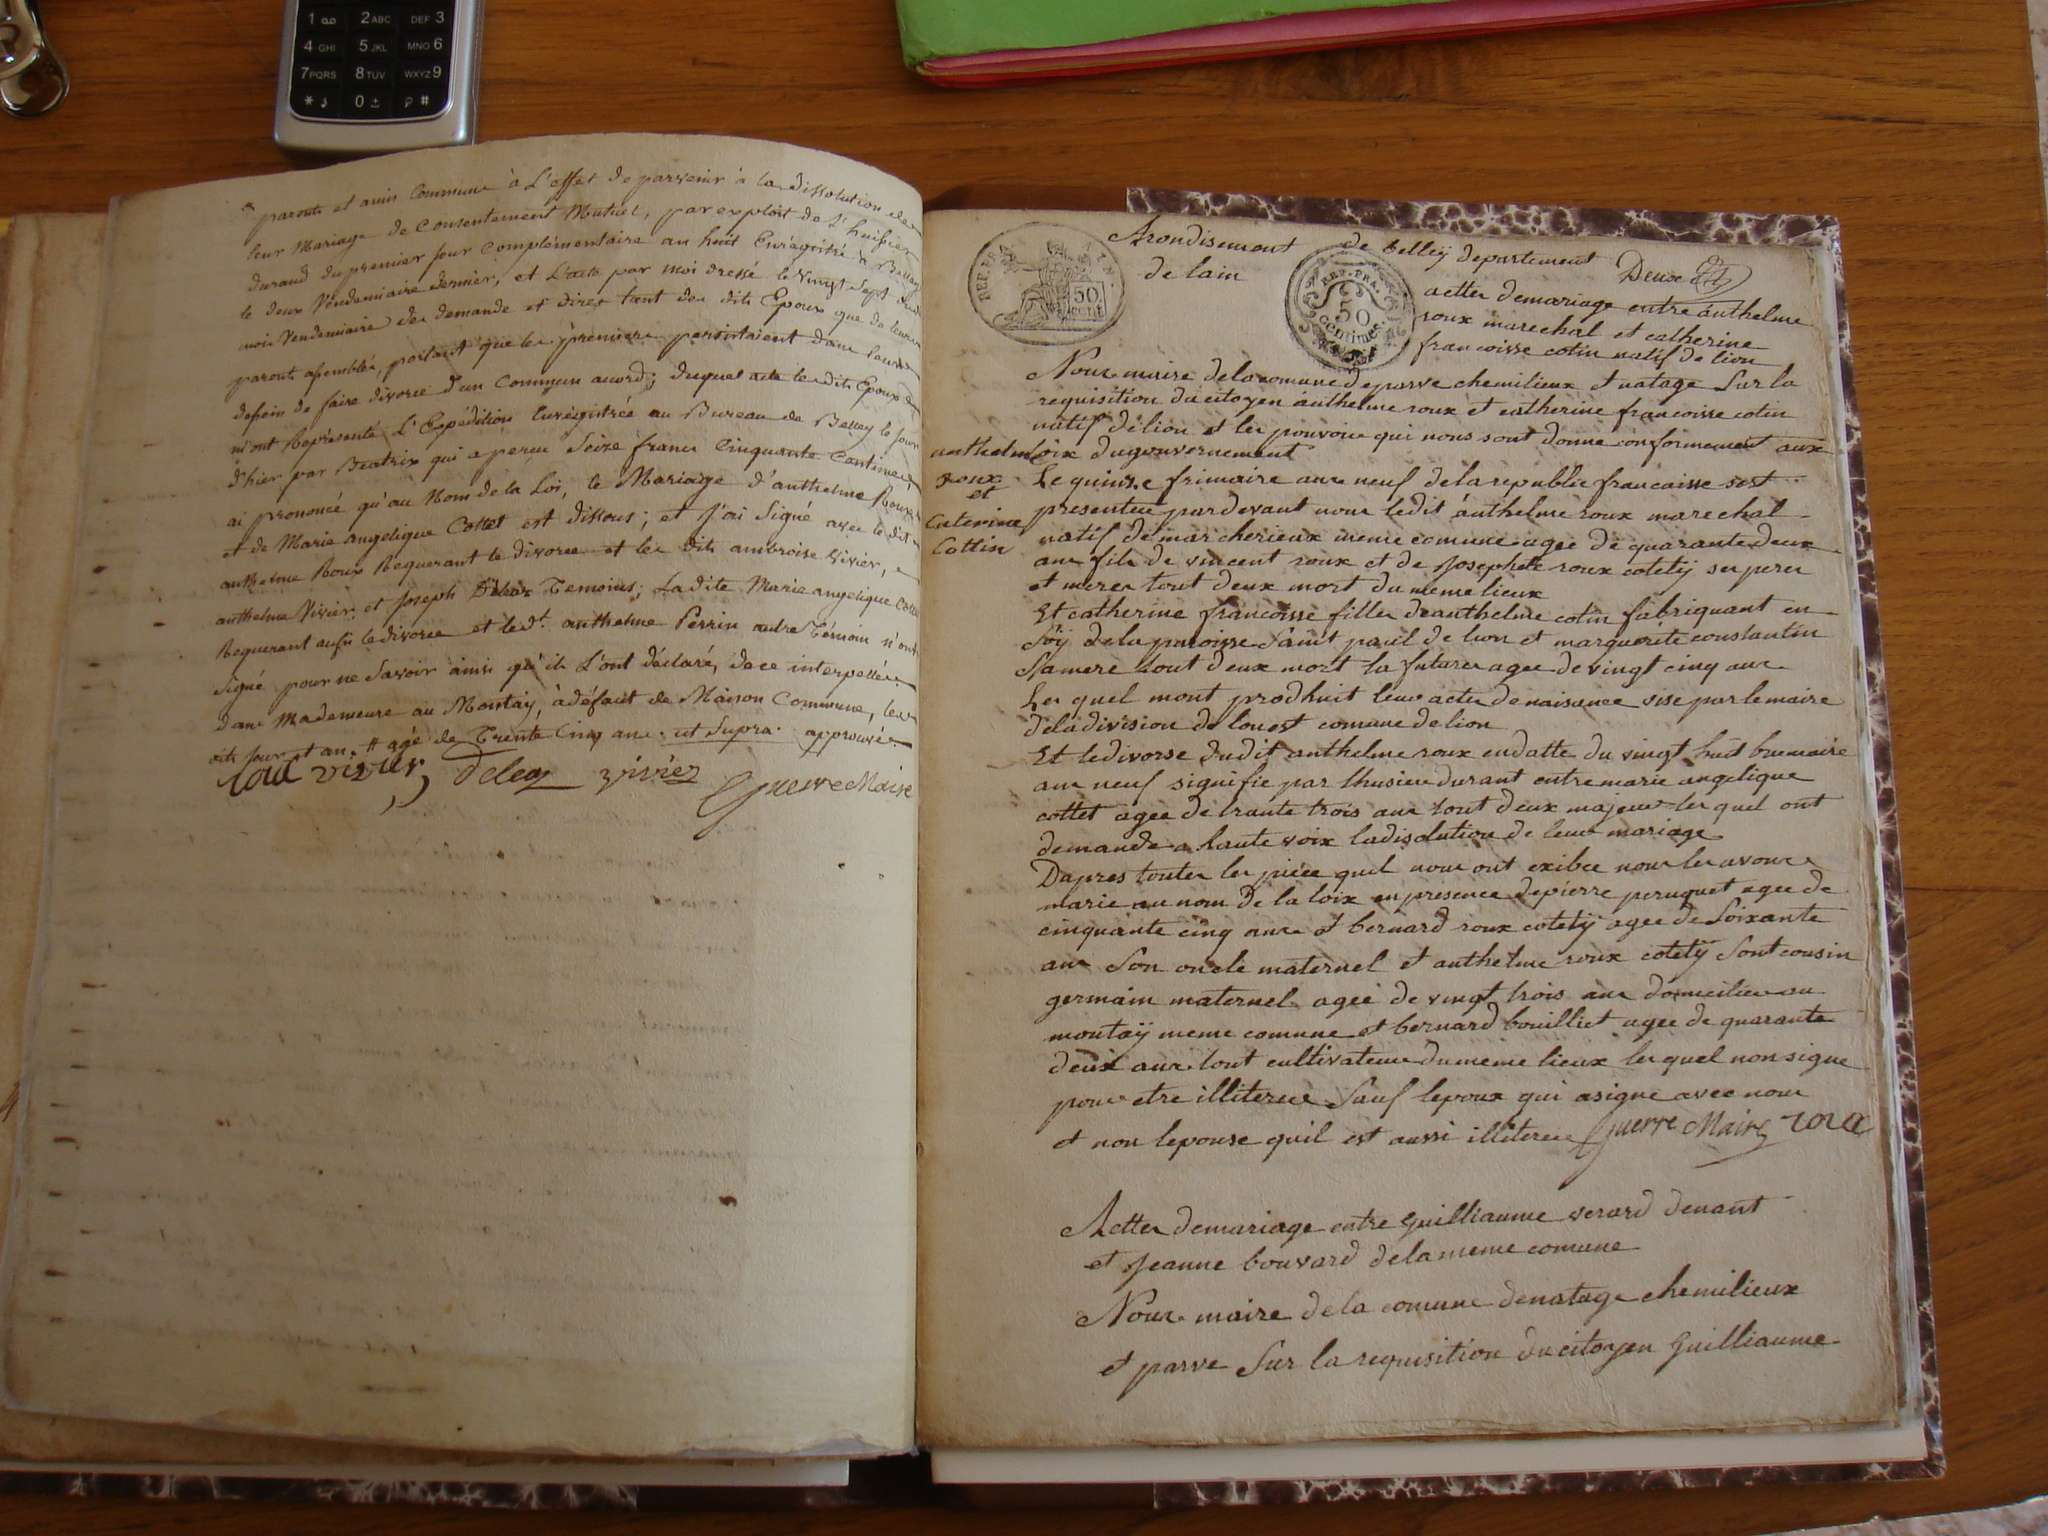 1 2ABC DEF 3
4 GHI 5 JKL MNO 6
7PQRS 8TUV WXYZ9
* 0 #
parents et amis Commune à L'effet de parvenir à la dissolution de
leur Mariage de Consentement Mutuel, par exploit de L'huissier
durand du premier jour Complémentaire an huit Enrégistré à Belley
le deux Vendemiaire dernier, et L'acte par moi dressé le Vingt Sept
mois Vendemiaire de demande et dires tant des dits Epoux que de leurs
parents assemblés, portant que les premiers persistaient dans leurs
desseins de faire divorce d'un Commun acord; duquel acte les dits Epoux
m'ont Représenté L'Expédition Enrégistrée au Bureau de Belley le jour
d'hier par Béatrix qui a perçu Seize francs Cinquante Centimes,
ai prononcé qu'au Nom de la Loi, le Mariage d'anthelme Roux
et de Marie angelique Collet est dissous; et J'ai Signé avec le dit
anthelme Roux Requerant le divorce et les dits ambroise Vivier,
anthelme Vivier et Joseph Temoins; La dite Marie angelique
Requerant aussi le divorce et le dt. anthelme Perrin autre Témoin n'ont
Signé pour ne Savoir ainsi qu'il L'ont déclaré, de ce interpellés.
dans Mademeure au Montay, à défaut de Maison Commune, les
dits jour et an. # agé de Trente Cinq ans. ut Supra. approuvé.
roux vivier vivier
Guerre Maire
Arondisement de belley departement
de lain
Deux
REP. FRA.
50 cent
REP. FRA.
50
centimes
actes demariage entre ánthelme
roux marechal et catherine
francoisse cotin natif de lion
Nous maire delacomune deparve chemilieux et natage Sur la
requisition du citoyen ánthelme roux et catherine francoisse cotin
natif délion et les pouvoirs qui nous sont donne conformement aux
loix dugouvernement
anthelme
roux
et
Caterine
Cottin
Le quinsse frimaire ans neuf delarepublic francaisse sest
presentee pardevant nous ledit ánthelme roux marechal
natif de marcherieux meme comune agee de quarante deux
ans fils de vincent roux et de Josephete roux cotetÿ ses peres
et meres tout deux mort du meme lieux
Et catherine francoisse filles deanthelme cotin fabriquant en
Soÿ dela paroisse Saint pauil de lion et marguerite constantin
Samere tout deux mort la future agee de vingt cinq ans
Les quel mont prodhuit leurs actes denaisance vise par lemaire
deladivision de louest comune delion
Et ledivorse dudit anthelme roux endatte du vingt huit brumaire
ans neuf signifie par lhusieu durant entre marie angelique
collet agee de trante trois ans tout deux majeur les quel ont
demande a haute voix ladisolution de leurs mariage
Dapres toutes les piece quil nous ont exibee nous les avons
marie au nom de la loix en presence depierre peruquet agee de
cinquante cinq ans et bernard roux cotetÿ agee de Soixante
ans Son oncle maternel et anthelme roux cotetÿ Sont cousin
germain maternel agee de vingt trois ans domicilies au
montaÿ meme comune et bernard bouilliet agee de quarante
deux ans tout cultivateur du meme lieux les quel nonsigne
pour etre illiteree Sauf lepoux qui asigne avec nous
et non lepouse quil est aussi illiteree Guerre Maire roux
Actes demariage entre Guilliaume verard denant
et Jeanne bouvard delameme comune
Nous maire dela comune denatage chemilieux
et parve Sur la requisition du citoyen Guilliaume